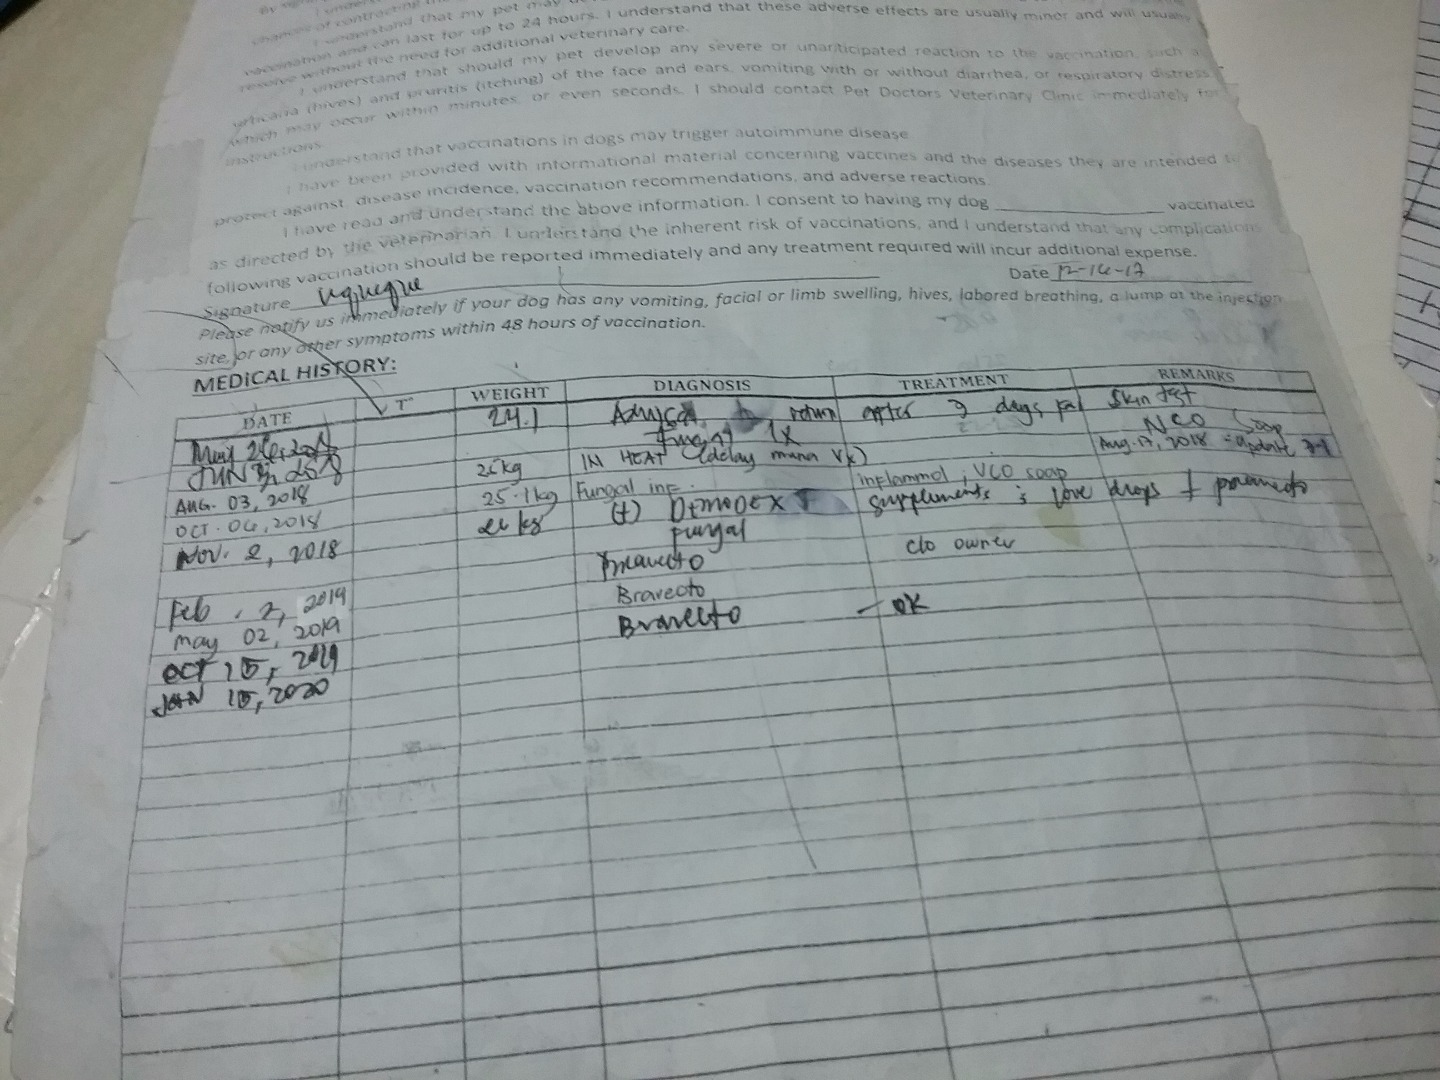 I understand that my pet may
vaccination and can last for up to 24 hours. I understand that these adverse effects are usually minor and will usually
resolve without the need for additional veterinary care.
I understand that should my pet develop any severe or unanticipated reaction to the vaccination, such a
urticaria (hives) and pruritis (itching) of the face and ears, vomiting with or without diarrhea, or respiratory distress
which may occur within minutes, or even seconds, I should contact Pet Doctors Veterinary Clinic immediately for
instructions.
I understand that vaccinations in dogs may trigger autoimmune disease
I have been provided with informational material concerning vaccines and the diseases they are intended t
protect against, disease incidence, vaccination recommendations, and adverse reactions.
I have read and understand the above information. I consent to having my dog ____ vaccinated
as directed by the veterinarian. I understand the inherent risk of vaccinations, and I understand that any complications
following vaccination should be reported immediately and any treatment required will incur additional expense.
Signature Date
Please notify us immediately if your dog has any vomiting, facial or limb swelling, hives, labored breathing, a lump at the injection
site, or any other symptoms within 48 hours of vaccination.
MEDICAL HISTORY:
DATE T° WEIGHT DIAGNOSIS TREATMENT REMARKS
24.1 return after 3 days for skin test
NCO Soap
26kg IN HEAT Aug. 17, 2018 update
AUG. 03, 2018 25.1kg Fungal inf. VCO soap
OCT. 06, 2018 (+) DEMODEX supplements love drops +
Nov. 2, 2018 fungal
Bravecto c/o owner
Feb. 2, 2019 Bravecto
May 02, 2019 Bravecto - OK
OCT 15, 2019
JAN 15, 2020